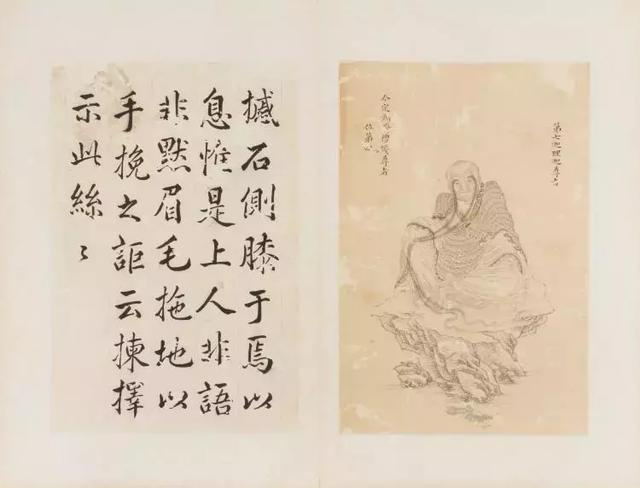 撼石側膝于焉以
息惟是上人非語
非默眉毛拖地以
手挽之詎云揀擇
示此絲〻
第七迦理迦尊者
今定為嘎禮嘎尊者
位第四